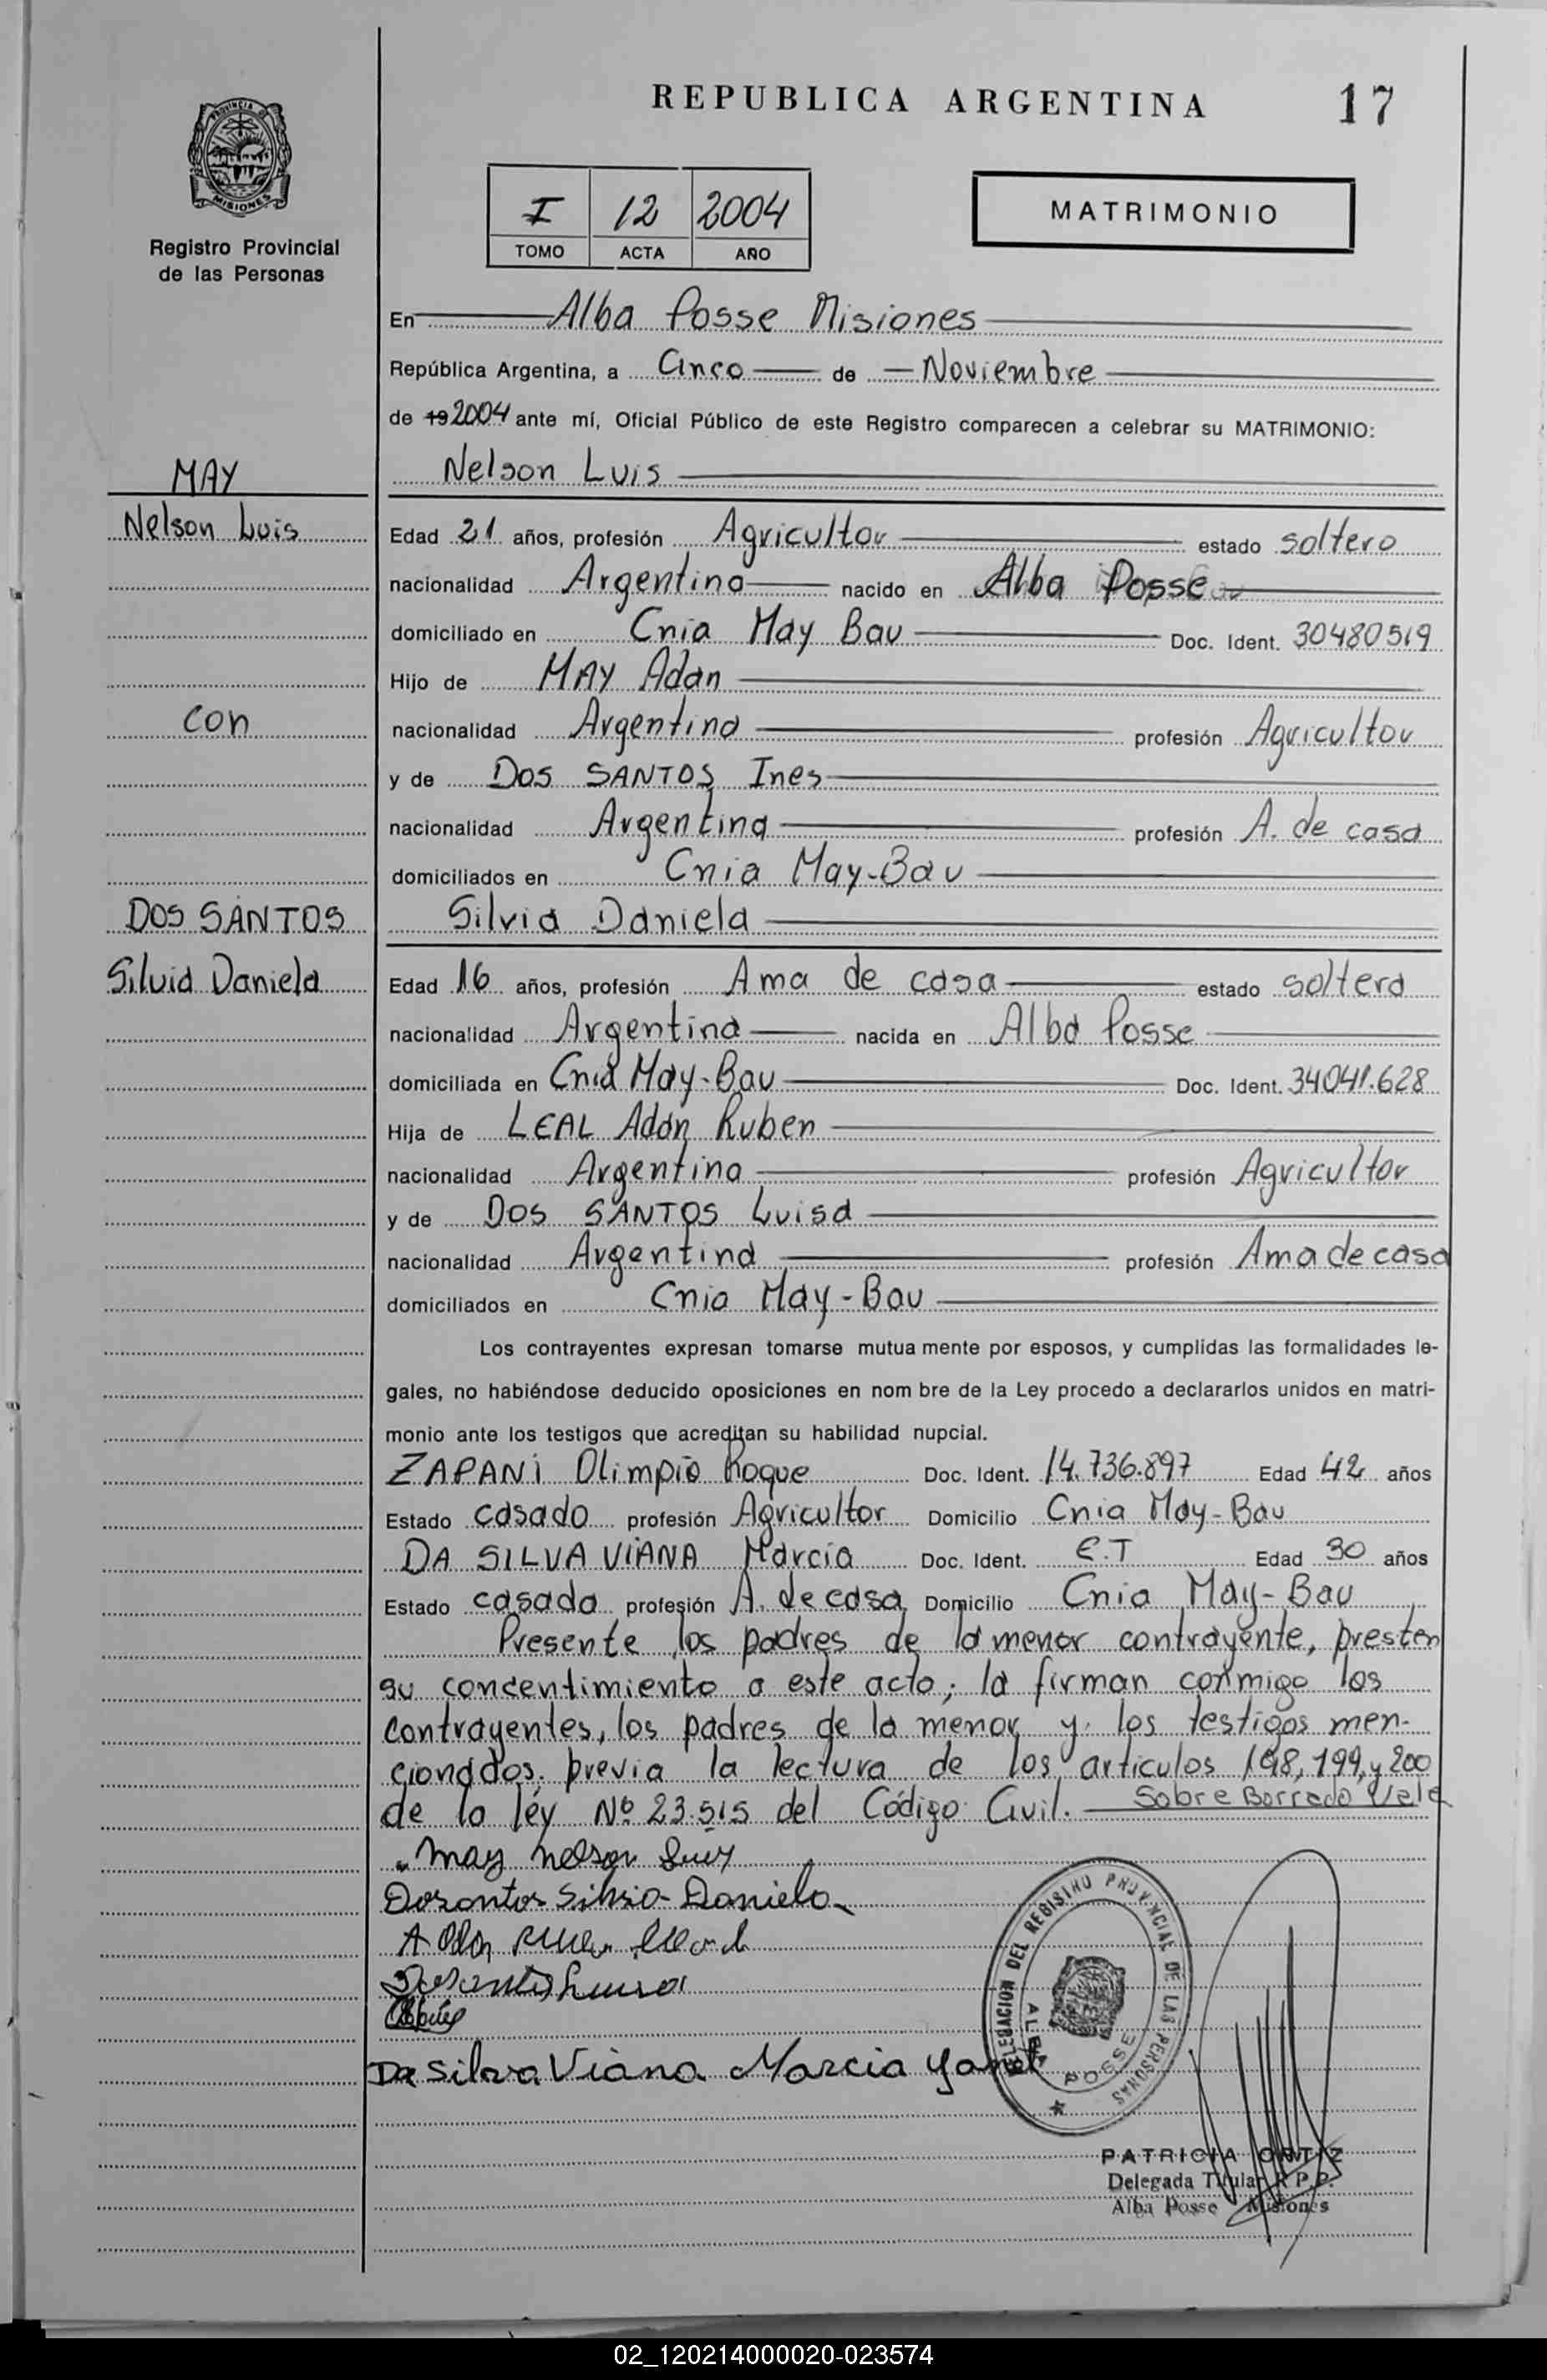 REPUBLICA ARGENTINA
17
PROVINCIA
MISIONES
Registro Provincial
de las Personas
I 12 2004
TOMO ACTA AÑO
MATRIMONIO
En Alba Posse Misiones
República Argentina, a Cinco de Noviembre
de 19 2004 ante mí, Oficial Público de este Registro comparecen a celebrar su MATRIMONIO:
MAY
Nelson Luis
Nelson Luis
Edad 21 años, profesión Agricultor estado soltero
nacionalidad Argentina nacido en Alba Posse
domiciliado en Cnia May Bau Doc. Ident. 30480519
Hijo de MAY Adan
con
nacionalidad Argentina profesión Agricultor
y de DOS SANTOS Ines
nacionalidad Argentina profesión A. de casa
domiciliados en Cnia May-Bau
DOS SANTOS
Silvia Daniela
Silvia Daniela
Edad 16 años, profesión Ama de casa estado soltera
nacionalidad Argentina nacida en Alba Posse
domiciliada en Cnia May-Bau Doc. Ident. 34041.628
Hija de LEAL Adan Ruben
nacionalidad Argentina profesión Agricultor
y de DOS SANTOS Luisa
nacionalidad Argentina profesión Ama de casa
domiciliados en Cnia May-Bau
Los contrayentes expresan tomarse mutua mente por esposos, y cumplidas las formalidades le-
gales, no habiéndose deducido oposiciones en nom bre de la Ley procedo a declararlos unidos en matri-
monio ante los testigos que acreditan su habilidad nupcial.
ZAPANi Olimpio Roque Doc. Ident. 14.736.897 Edad 42 años
Estado casado profesión Agricultor Domicilio Cnia May-Bau
DA SILVA ViANA Marcia Doc. Ident. C.I Edad 30 años
Estado casada profesión A. de casa Domicilio Cnia May-Bau
Presente los padres de la menor contrayente, presten
su concentimiento a este acto; la firman conmigo los
contrayentes, los padres de la menor y los testigos men-
cionados, previa la lectura de los articulos 198, 199, y 200
de la léy Nº 23.515 del Código Civil. Sobre Borrado Vale
May Nelson Luis
Dosantos Silvia Daniela
Dosantos Luisa
Da Silva Viana Marcia Yanet
DELEGACION DEL REGISTRO PROVINCIAL DE LAS PERSONAS
ALBA POSSE
PATRICIA ORTIZ
Delegada Titular R.P.P.
Alba Posse Misiones
02_120214000020-023574